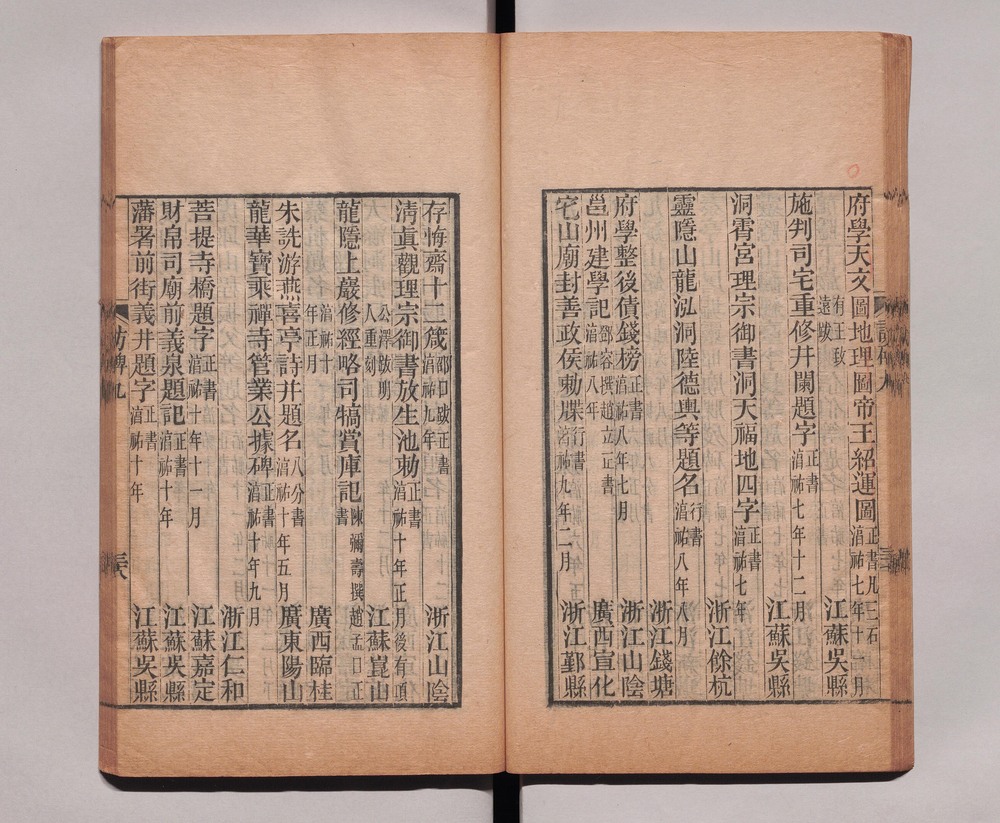 府學天文圖地理圖帝王紹運圖正書凡三石湻祐七年十一月
有王致遠跋 江蘇吳縣
施判司宅重修井闌題字正書湻祐七年十二月
江蘇吳縣
洞霄宮理宗御書洞天福地四字正書湻祐七年
浙江餘杭
靈隱山龍泓洞陸德輿等題名行書湻祐八年八月
浙江錢塘
府學整後債錢榜正書湻祐八年七月 浙江山陰
邕州建學記鄧容撰趙立正書湻祐八年 廣西宣化
宅山廟封善政侯勅牒行書湻祐九年二月 浙江鄞縣
存悔齋十二箴正書湻祐九年 浙江山陰
淸眞觀理宗御書放生池勅正書湻祐十年正月後有項
公澤跋明人重刻 江蘇崑山
龍隱上巖修經略司犒賞庫記陳彌壽撰趙孟日正書
湻祐十年正月 廣西臨桂
朱詵游燕喜亭詩幷題名八分書湻祐十年五月 廣東陽山
龍華寶乘禪寺管業公據碑正書湻祐十年九月
浙江仁和
菩提寺橋題字正書湻祐十年十一月 江蘇嘉定
財帛司廟前義泉題記正書湻祐十年 江蘇吳縣
藩署前街義井題字正書湻祐十年 江蘇吳縣
訪碑九